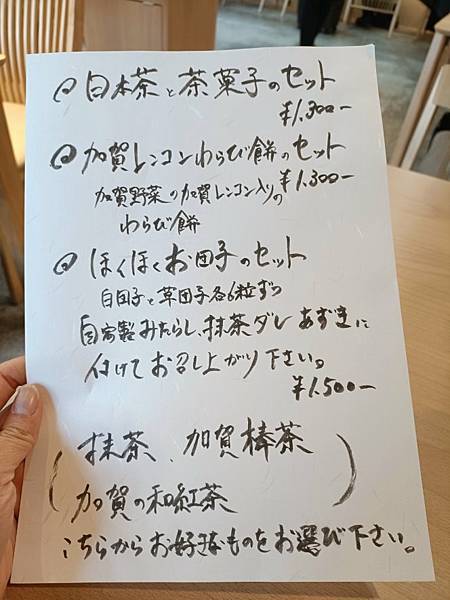 ◎日本茶と茶菓子のセット
¥1.300-
◎加賀レンコンわらび餅のセット
¥1.300-
加賀野菜の加賀レンコン入りの
わらび餅
◎ほくほくお団子のセット
白団子と草団子各6粒ずつ
自家製みたらし、抹茶ダレあずきに
付けてお召し上がり下さい。
¥1.500-
(抹茶、加賀棒茶
加賀の和紅茶)
こちらからお好きなものをお選び下さい。